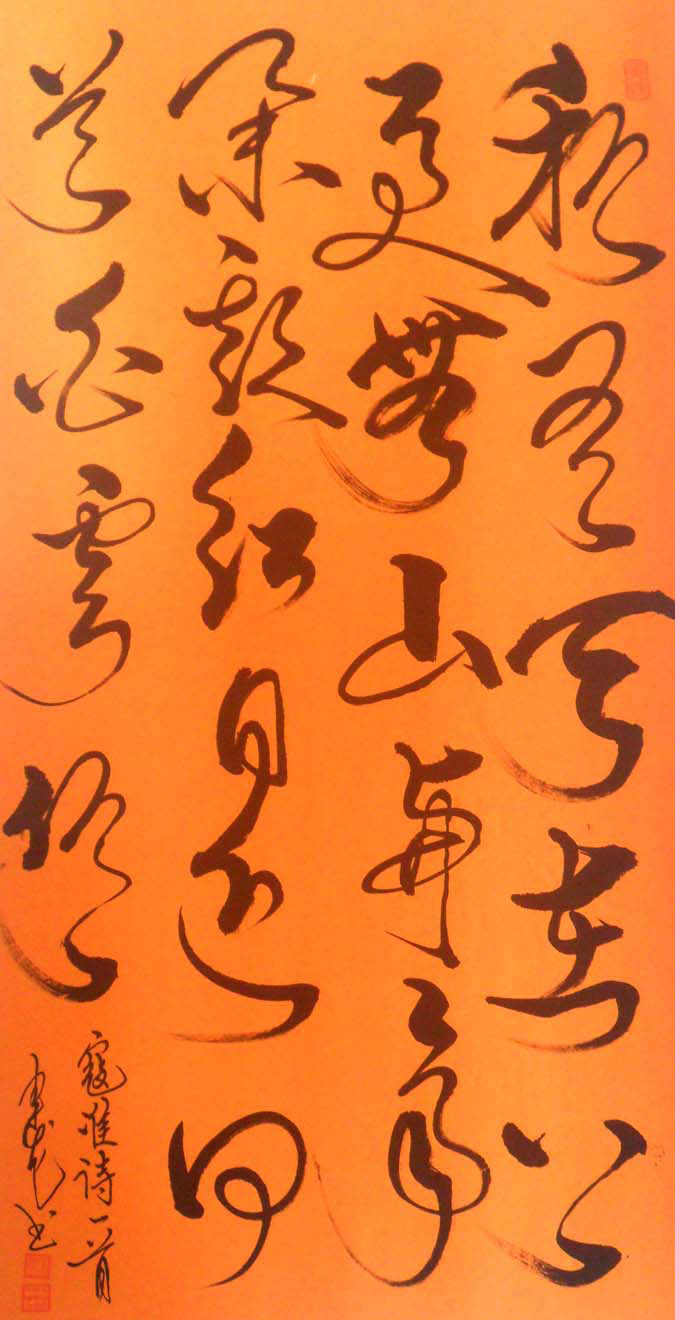 秖有天在上
更無山與齊
舉頭紅日近回
首白雲低
寇準诗一首
书